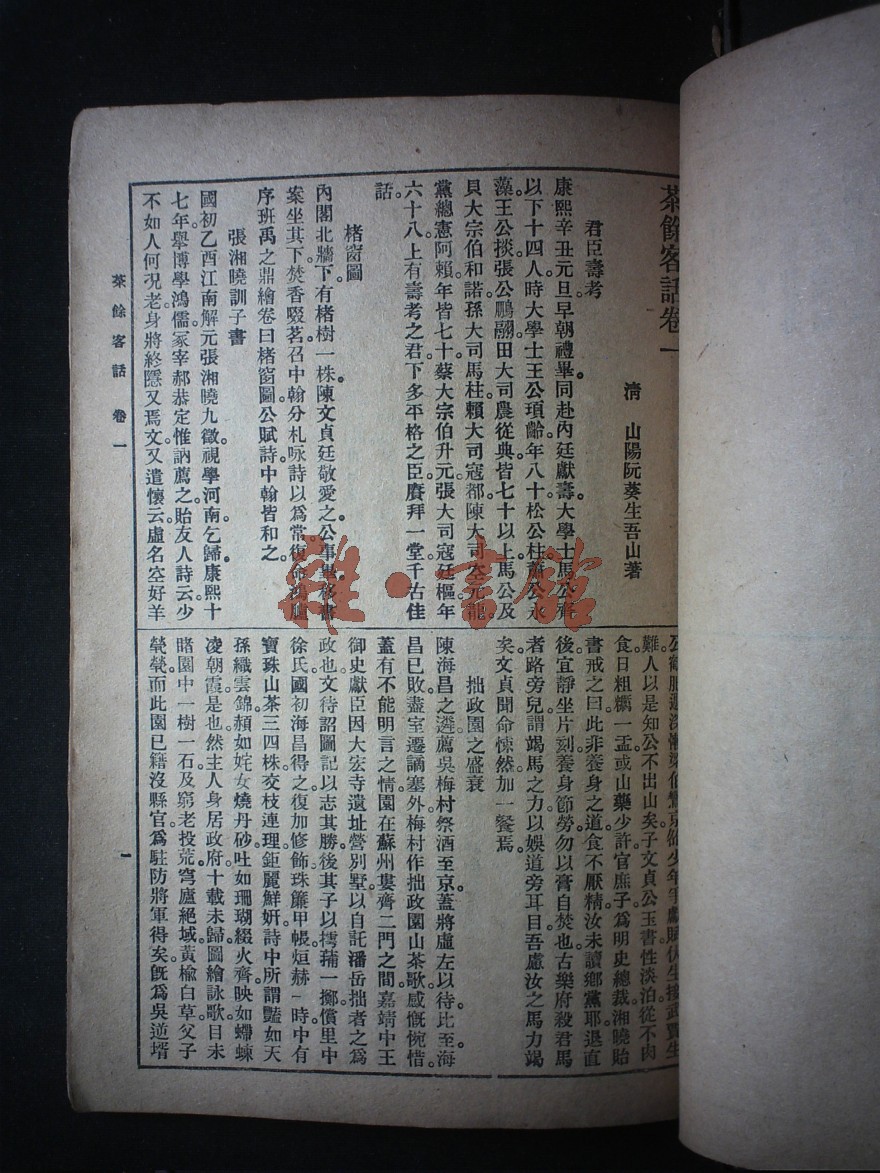 茶餘客話卷一
清 山陽阮葵生吾山著
君臣壽考
康熙辛丑元旦早朝禮畢。同赴內廷獻壽大學士馬公齊
以下十四人。時大學士王公頊齡年八十。松公柱蕭公永
藻。王公掞。張公鵬翮。田大司農從典。皆七十以上。馬公及
貝大宗伯和諾。孫大司馬柱。賴大司寇都。陳大司空元龍。
黨總憲阿賴。年皆七十。蔡大宗伯升元。張大司寇廷樞。年
六十八。上有壽考之君。下多平格之臣。賡拜一堂。千古佳
話。
楮窗圖
內閣北牆下有楮樹一株。陳文貞廷敬愛之。公事畢。移書
案坐其下。焚香啜茗。召中翰分札咏詩以爲常。復命鴻臚
序班禹之鼎繪卷。曰楮窗圖。公賦詩。中翰皆和之。
張湘曉訓子書
國初乙酉江南解元張湘曉九徵。視學河南。乞歸。康熙十
七年。舉博學鴻儒。冢宰郝恭定惟訥薦之。貽友人詩云。少
不如人何況老。身將終隱又焉文。又遣懷云。虛名空好羊
難人。以是知公不出山矣。子文貞公玉書。性淡泊。從不肉
食。日粗糲一盂。或山藥少許。官庶子。爲明史總裁。湘曉貽
書戒之曰。此非養身之道。食不厭精。汝未讀鄉黨耶。退直
後宜靜坐片刻。養身節勞。勿以膏自焚也。古樂府殺君馬
者路旁兒。謂竭馬之力。以娛道旁耳目。吾慮汝之馬力竭
矣。文貞聞命悚然。加一餐焉。
拙政園之盛衰
陳海昌之遴薦吳梅村祭酒至京。蓋將虛左以待。比至。海
昌已敗。盡室遷謫塞外。梅村作拙政園山茶歌。感慨惋惜。
蓋有不能明言之情。園在蘇州婁齊二門之間。嘉靖中王
御史獻臣因大宏寺遺址營別墅。以自託潘岳拙者之爲
政也。文待詔圖記以志其勝。後其子以摴蒱一擲償里中
徐氏。國初海昌得之。復加修飾。珠簾甲帳。烜赫一時。中有
寶珠山茶三四株。交枝連理。鉅麗鮮妍。詩中所謂豔如天
孫織雲錦。赬如姹女燒丹砂。吐如珊瑚綴火齊。映如螮蝀
凌朝霞是也。然主人身居政府。十載未歸。圖繪詠歌。目未
睹園中一樹一石。及窮老投荒。穹廬絕域。黃楡白草。父子
煢煢。而此園已籍沒縣官。爲駐防將軍得矣。旣爲吳逆壻
茶餘客話 卷一
一
雜·書館